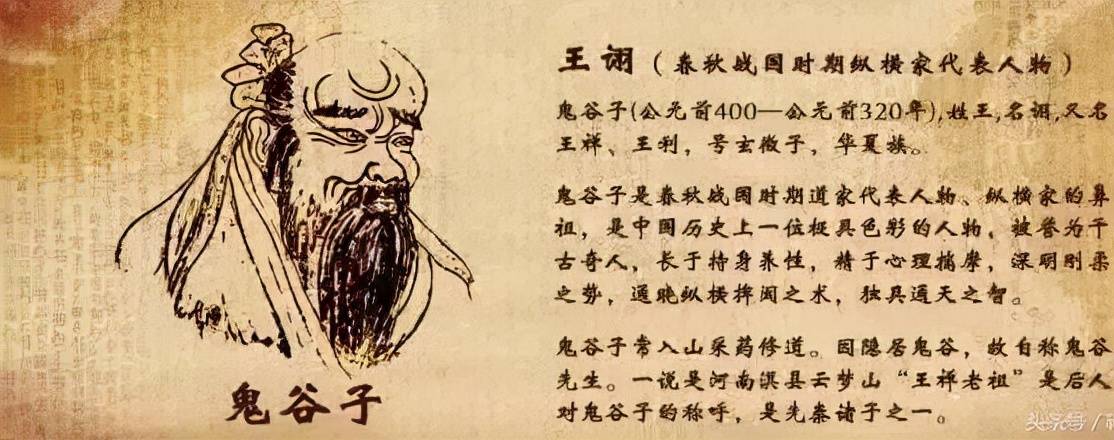 王诩（春秋战国时期纵横家代表人物）
鬼谷子(公元前400—公元前320年),姓王,名诩,又名
王禅、王利，号玄微子，华夏族。
鬼谷子是春秋战国时期道家代表人物、纵横家的鼻
祖，是中国历史上一位极具色彩的人物，被誉为千
古奇人，长于持身养性，精于心理揣摩，深明刚柔
之势，通晓纵横捭阖之术，独具通天之智。
鬼谷子常入山采药修道。因隐居鬼谷，故自称鬼谷
先生。一说是河南淇县云梦山“王禅老祖”是后人
对鬼谷子的称呼，是先秦诸子之一。
鬼谷子
头条号 /